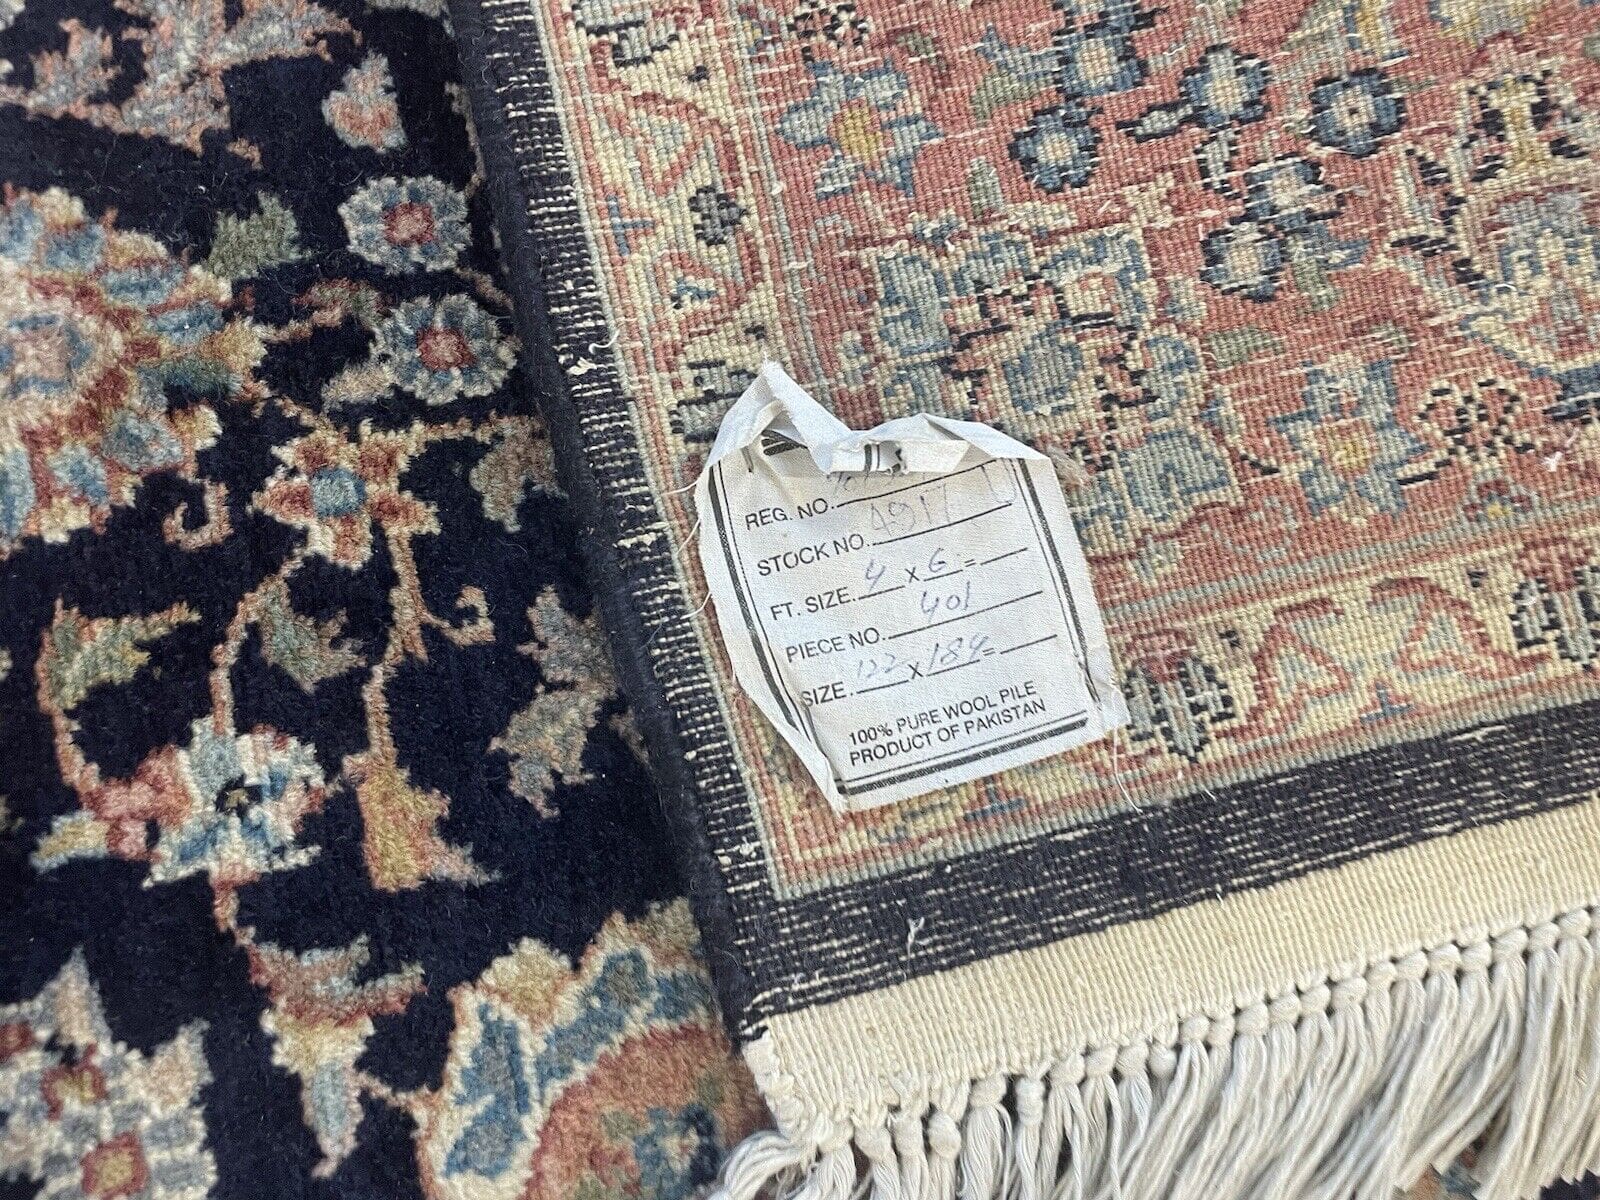 REG. NO.
STOCK NO. 4917
FT. SIZE. 4 X 6 =
PIECE NO. 401
SIZE. 122 X 184 =
100% PURE WOOL PILE
PRODUCT OF PAKISTAN